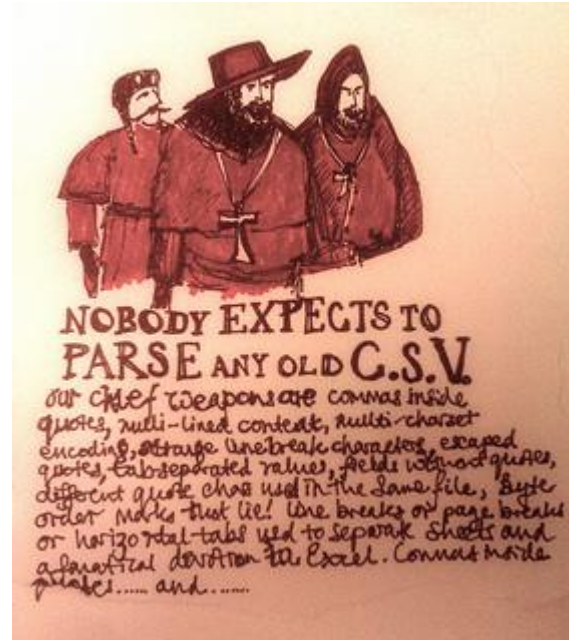 NOBODY EXPECTS TO
PARSE ANY OLD C.S.V.
our chief weapons are commas inside
quotes, multi-lined content, multi-charset
encoding, strange linebreak characters, escaped
quotes, tab separated values, fields without quotes,
different quote chars used in the same file, Byte
order marks that lie! Line breaks or page breaks
or horizontal tabs used to separate sheets and
a fanatical devotion to Excel. Commas inside
quotes...... and.......